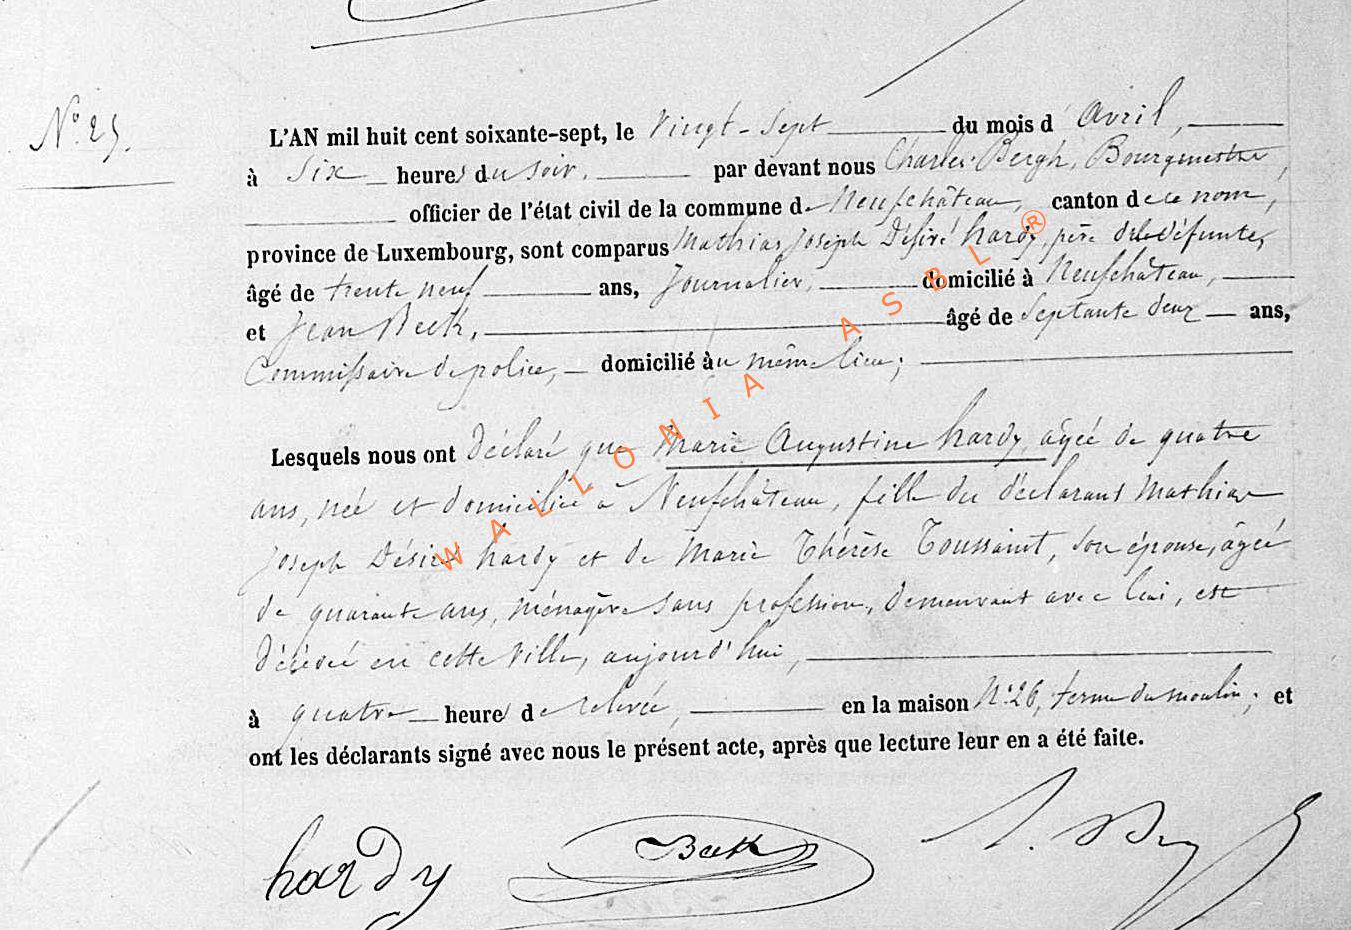 N° 25.
L'AN mil huit cent soixante-sept, le Vingt-Sept du mois d'Avril,
à Six heures du soir, par devant nous Charles Bergh, Bourgmestre,
officier de l'état civil de la commune de Neufchâteau, canton de ce nom,
province de Luxembourg, sont comparus Mathias Joseph Désiré hardy, père de la défunte,
âgé de trente neuf ans, Journalier, domicilié à Neufchâteau,
et Jean Beck, âgé de Septante deux ans,
Commissaire de police, domicilié au même lieu;
Lesquels nous ont Déclaré que Marie Augustine hardy, agée de quatre
ans, née et domiciliée à Neufchâteau, fille du déclarant Mathias
Joseph Désiré hardy et de Marie Thérèse Toussaint, son épouse, âgée
de quarante ans, ménagère sans profession, demeurant avec lui, est
Décédée en cette Ville, aujourd'hui,
à quatre heures de relevée, en la maison N° 26, ferme du moulin; et
ont les déclarants signé avec nous le présent acte, après que lecture leur en a été faite.
hardy Beck
WALLONIA ASBL ®